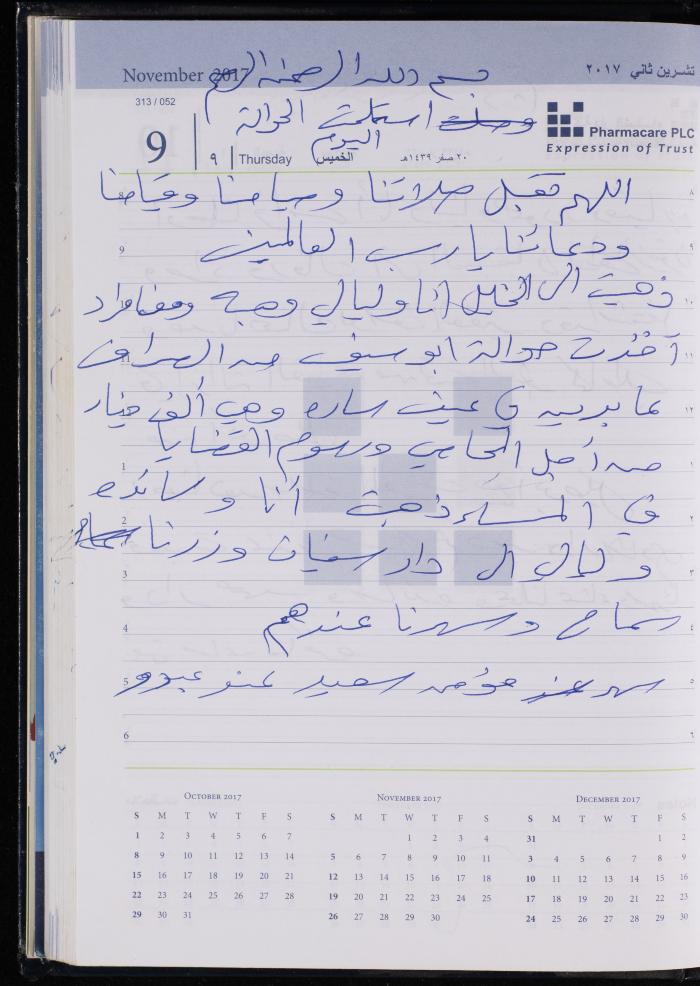 November 2017 تشرين ثاني ٢٠١٧
بسم الله الرحمن الرحيم
313 / 052
وصلت استلمت الحوالة
اليوم
9 ٩ Thursday الخميس ٢٠ صفر ١٤٣٩هـ
Pharmacare PLC
Expression of Trust
اللهم تقبل صلاتنا وصيامنا وقيامنا
ودعائنا يا رب العالمين
ذهبت الى الخليل انا وليالي وهبه
أخذت حوالة ابو سيف من الصراف
عما بريبه في عين ساره وهي ألف دينار
من أجل المحامي ورسوم القضايا
في المساء ذهبت أنا وسائده
وليالي الى دار سفيان وزرنا سماح
سماح وسهرنا عندهم
سهر عند مؤمن سعيد عند عبود
8 ٨
9 ٩
10 ١٠
11 ١١
12 ١٢
1 ١
2 ٢
3 ٣
4 ٤
5 ٥
6 ٦
OCTOBER 2017
S M T W T F S
1 2 3 4 5 6 7
8 9 10 11 12 13 14
15 16 17 18 19 20 21
22 23 24 25 26 27 28
29 30 31
NOVEMBER 2017
S M T W T F S
1 2 3 4
5 6 7 8 9 10 11
12 13 14 15 16 17 18
19 20 21 22 23 24 25
26 27 28 29 30
DECEMBER 2017
S M T W T F S
31 1 2
3 4 5 6 7 8 9
10 11 12 13 14 15 16
17 18 19 20 21 22 23
24 25 26 27 28 29 30